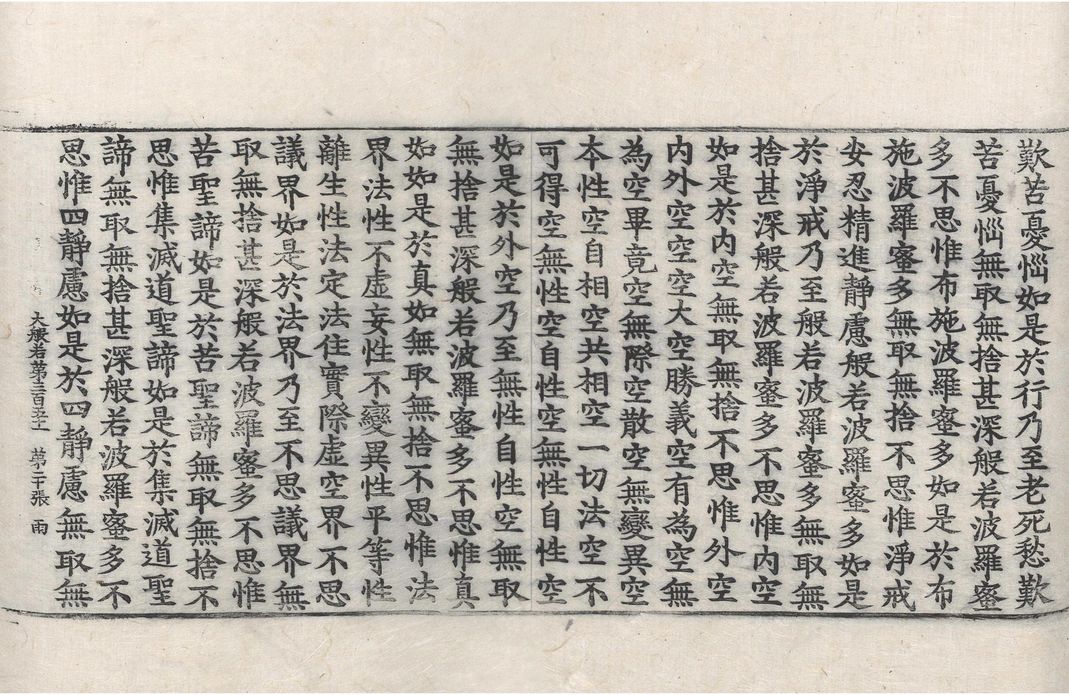 歎苦憂惱如是於行乃至老死愁歎
苦憂惱無取無捨甚深般若波羅蜜
多不思惟布施波羅蜜多如是於布
施波羅蜜多無取無捨不思惟淨戒
安忍精進靜慮般若波羅蜜多如是
於淨戒乃至般若波羅蜜多無取無
捨甚深般若波羅蜜多不思惟内空
如是於内空無取無捨不思惟外空
内外空空空大空勝義空有為空無
為空畢竟空無際空散空無變異空
本性空自相空共相空一切法空不
可得空無性空自性空無性自性空
如是於外空乃至無性自性空無取
無捨甚深般若波羅蜜多不思惟真
如如是於真如無取無捨不思惟法
界法性不虛妄性不變異性平等性
離生性法定法住實際虛空界不思
議界如是於法界乃至不思議界無
取無捨甚深般若波羅蜜多不思惟
苦聖諦如是於苦聖諦無取無捨不
思惟集滅道聖諦如是於集滅道聖
諦無取無捨甚深般若波羅蜜多不
思惟四靜慮如是於四靜慮無取無
大般若第三百五十一 第二十張 雨